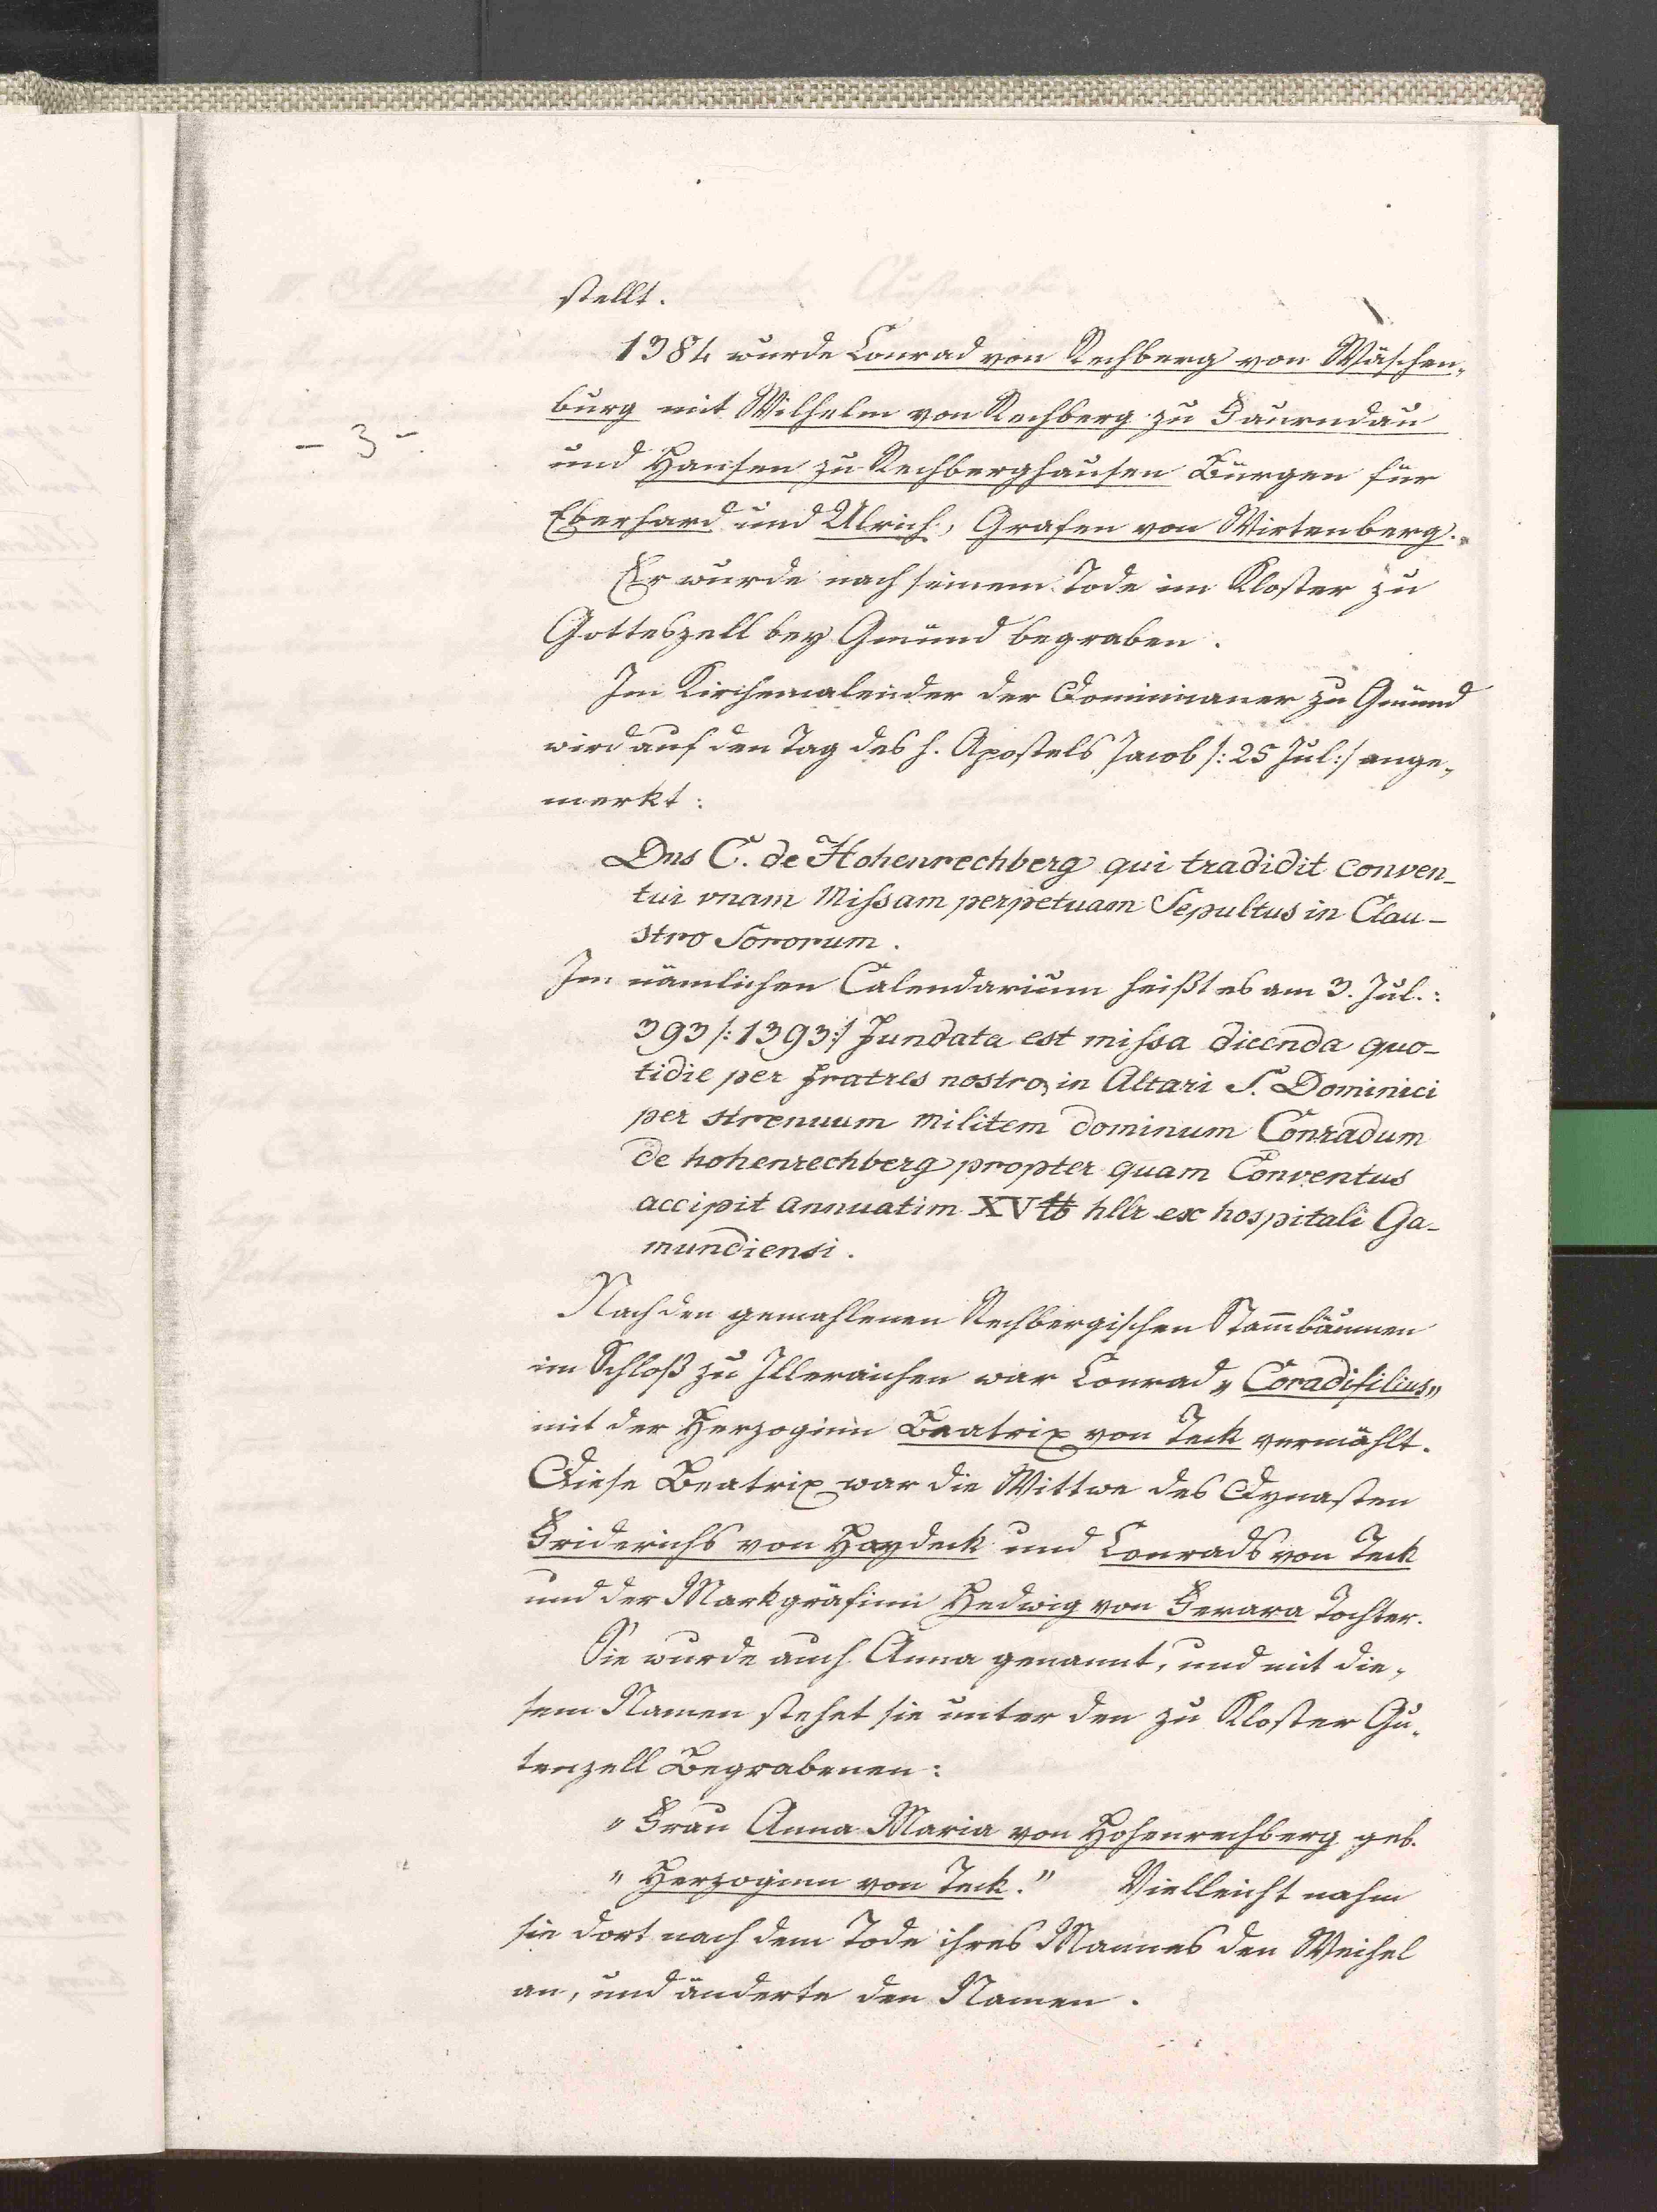 stellt.
1384 wurde Conrad von Rechberg von Wäschen„
burg mit Wilhelm von Rechberg zu Faurndau
- 3 -
und Hansen zu Rechberghausen Bürgen für
Eberhard und Ulrich, Grafen von Wirtenberg.
Er wurde nach seinem Tode im Kloster zu
Gotteszell bey Gmünd begraben.
Im Kirchencalender der Dominicaner zu Gmünd
wird auf den Tag des h. Apostels Jacob /: 25 Jul :/ ange„
merkt:
Dns C. de Hohenrechberg qui tradidit conven-
tui vnam Missam perpetuam Sepultus in Clau-
stro Sororum.
Im nämlichen Calendarium heißt es am 3. Jul.:
393 /: 1393 :/ Fundata est missa dicenda quo-
tidie per fratres nostros in Altari S. Dominici
per strenuum Militem dominum Conradum
de hohenrechberg propter quam Conventus
accipit annuatim XV ℔ hllr ex hospitali Ga-
mundiensi.
Nach den gemahlenen Rechbergischen Stam̄bäumen
im Schloß zu Illeraichen war Conrad „Coradifilius„
mit der Herzoginn Beatrix von Teck vermählt.
Diese Beatrix war die Wittwe des Dynasten
Friderichs von Haydeck und Conrads von Teck
und der Markgräfinn Hedwig von Ferara Tochter.
Sie wurde auch Anna genannt, und mit die„
sem Namen stehet sie unter den zu Kloster Gu„
tenzell Begrabenen:
„Frau Anna Maria von Hohenrechberg geb.
„Herzoginn von Teck." Vielleicht nahm
sie dort nach dem Tode ihres Mannes den Weihel
an, und änderte den Namen.